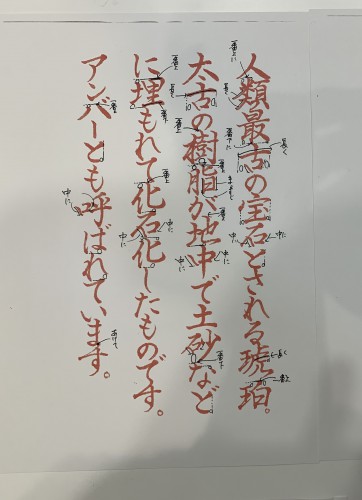 人類最古の宝石とされる琥珀。
太古の樹脂が地中で土砂など
に埋もれて化石化したものです。
アンバーとも呼ばれています。